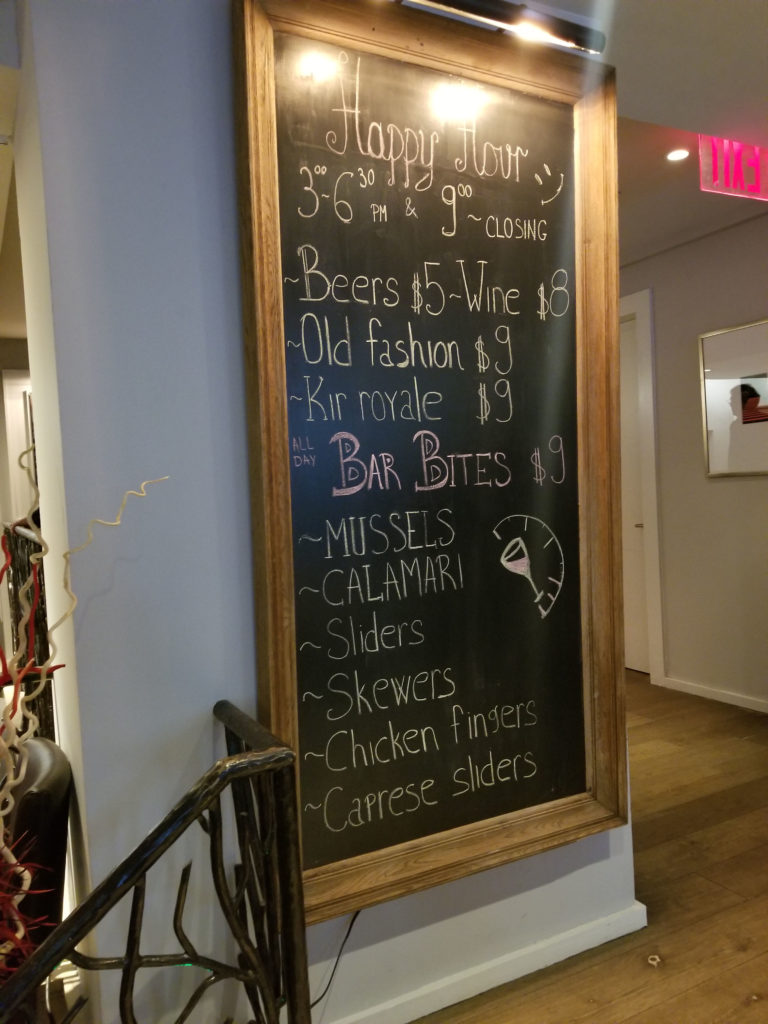 Happy Hour
3:00~6:30 PM & 9:00 ~ CLOSING
~Beers $5~Wine $8
~Old fashion $9
~Kir royale $9
ALL DAY BAR BITES $9
~MUSSELS
~CALAMARI
~Sliders
~Skewers
~Chicken fingers
~Caprese sliders
EXIT